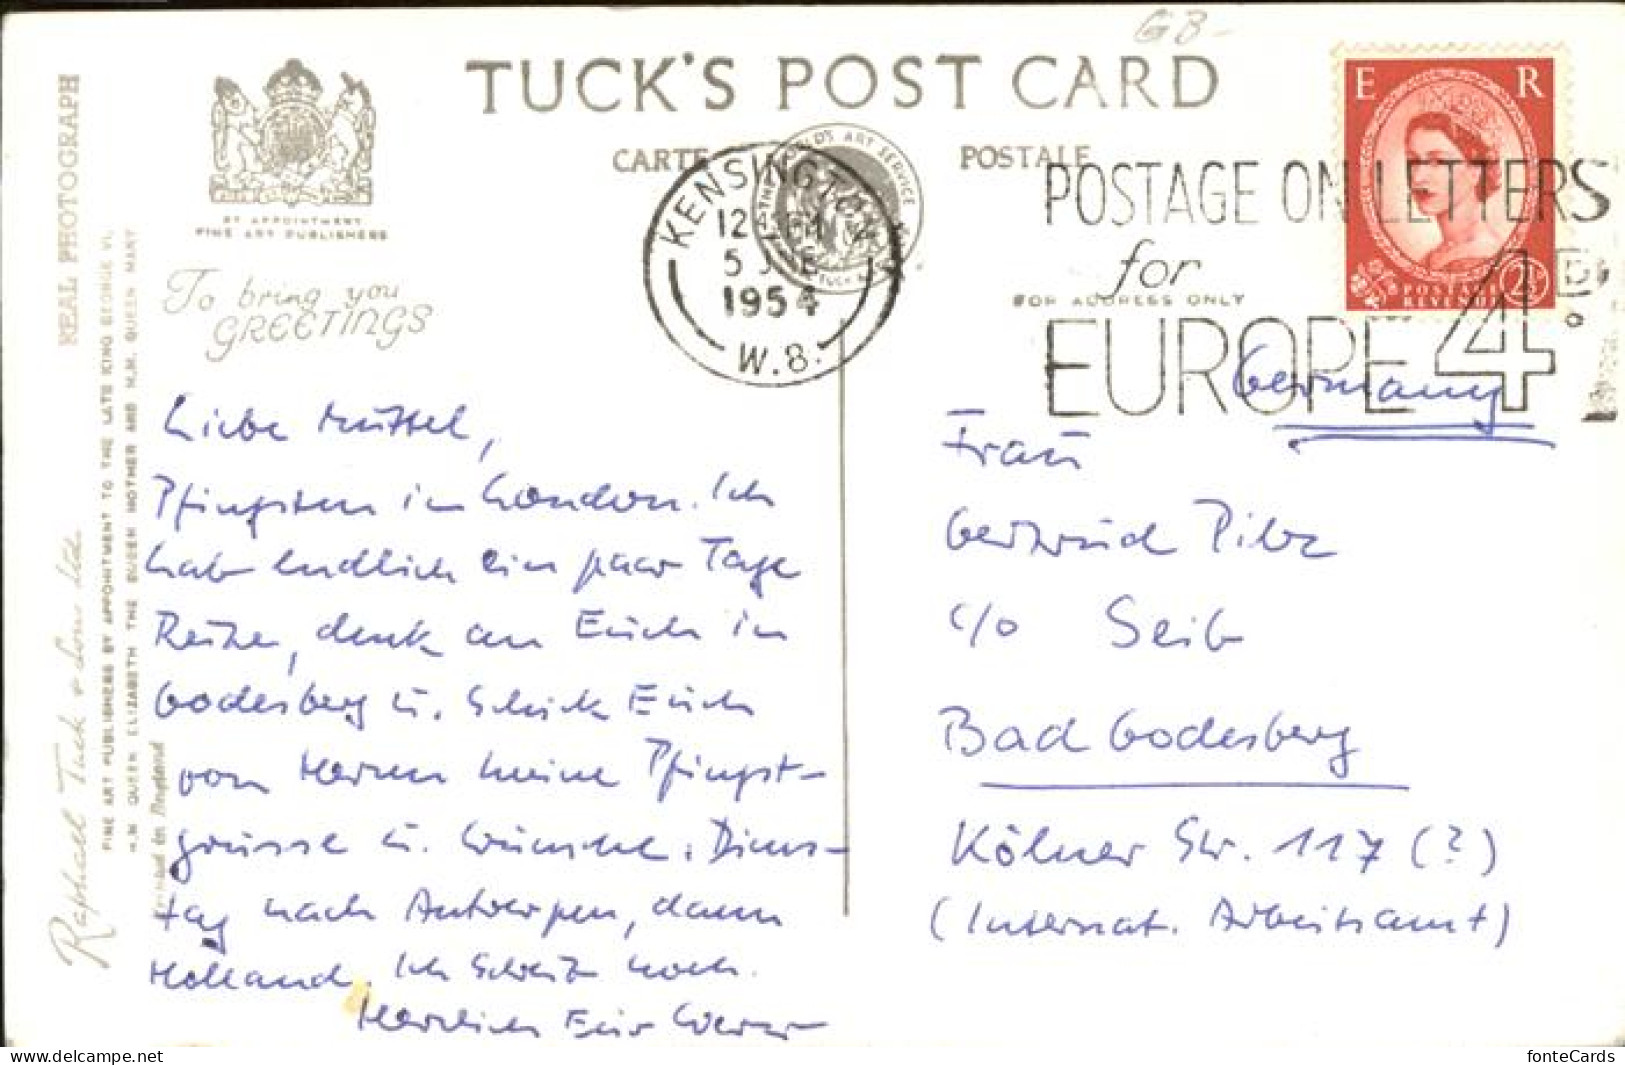 GB-
TUCK'S POST CARD
CARTE POSTALE
THE WORLD'S ART SERVICE
TUCK'S
BY APPOINTMENT
FINE ART PUBLISHERS
To bring you
GREETINGS
REAL PHOTOGRAPH
Raphael Tuck & Sons Ltd.
FINE ART PUBLISHERS BY APPOINTMENT TO THE LATE KING GEORGE VI,
H.M. QUEEN ELIZABETH THE QUEEN MOTHER AND H.M. QUEEN MARY
KENSINGTON
12
5 JNE
1954
W.8.
POSTAGE ON LETTERS
for
EUROPE 4D.
FOR ADDRESS ONLY
E R
POSTAGE
REVENUE
2½
Liebe Muttel,
Pfingsten in London. Ich
hab endlich ein paar Tage
Reise, denk an Euch in
Godesberg u. schick Euch
von Herzen meine Pfingst-
grüsse u. Wünsche. Diens-
tag nach Antwerpen, dann
Holland. Ich schreib noch.
Herzlich Euer Werner
Germany
Frau
Gertrud Pilz
c/o Seib
Bad Godesberg
Kölner Str. 117 (?)
(Internat. Arbeitsamt)
fonteCards
www.delcampe.net